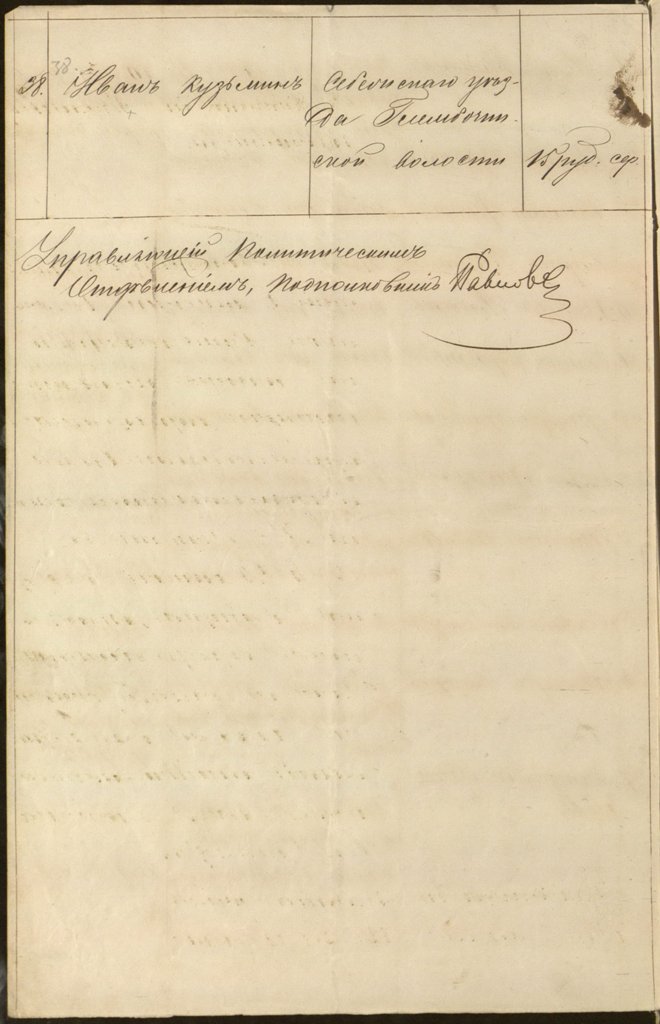 38.
38. Иванъ Кузьминъ
Себежскаго уѣз-
да Глембочин-
ской волости
15 руб. сер.
Управляющій Политическимъ
Отдѣленіемъ, Подполковникъ Павловъ